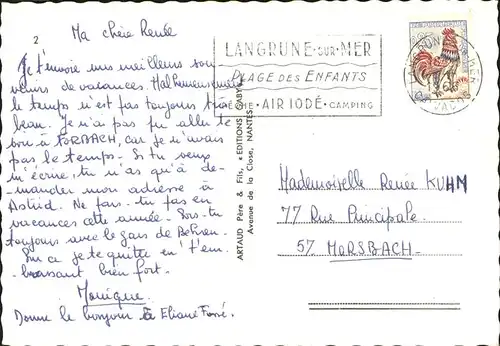 2
Ma chère Renée
Je t'envoie mes meilleurs sou-
venirs de vacances. Malheureusement
le temps n'est pas toujours très
beau. Je n'ai pas pu aller te
voir à FORBACH, car je n'avais
pas le temps. Si tu veux
m'écrire, tu n'as qu'à de-
mander mon adresse à
Astrid. Ne fais-tu pas en
vacances cette année. Sors-tu
toujours avec le gars de Behren.
Sur ce je te quitte en t'em-
brassant bien fort.
Monique
Donne le bonjour à Eliane
LANGRUNE-SUR-MER
PLAGE DES ENFANTS
PÊCHE - AIR IODÉ - CAMPING
ARTAUD Père & Fils, « EDITIONS GABY »
Avenue de la Close, NANTES
Mademoiselle Renée KUHN
77 Rue Principale
57. MORSBACH.